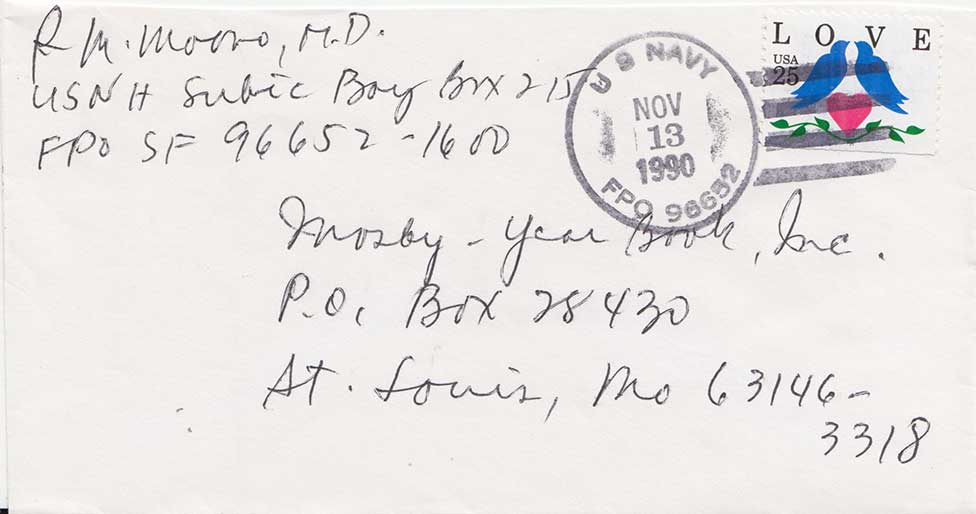 R M. Moore, M.D.
USNH Subic Bay Box 215
FPO SF 96652-1600
LOVE
USA
25
U S NAVY
NOV
13
1990
FPO 96652
Mosby-Year Book, Inc.
P.O. Box 28430
St. Louis, Mo 63146-
3318